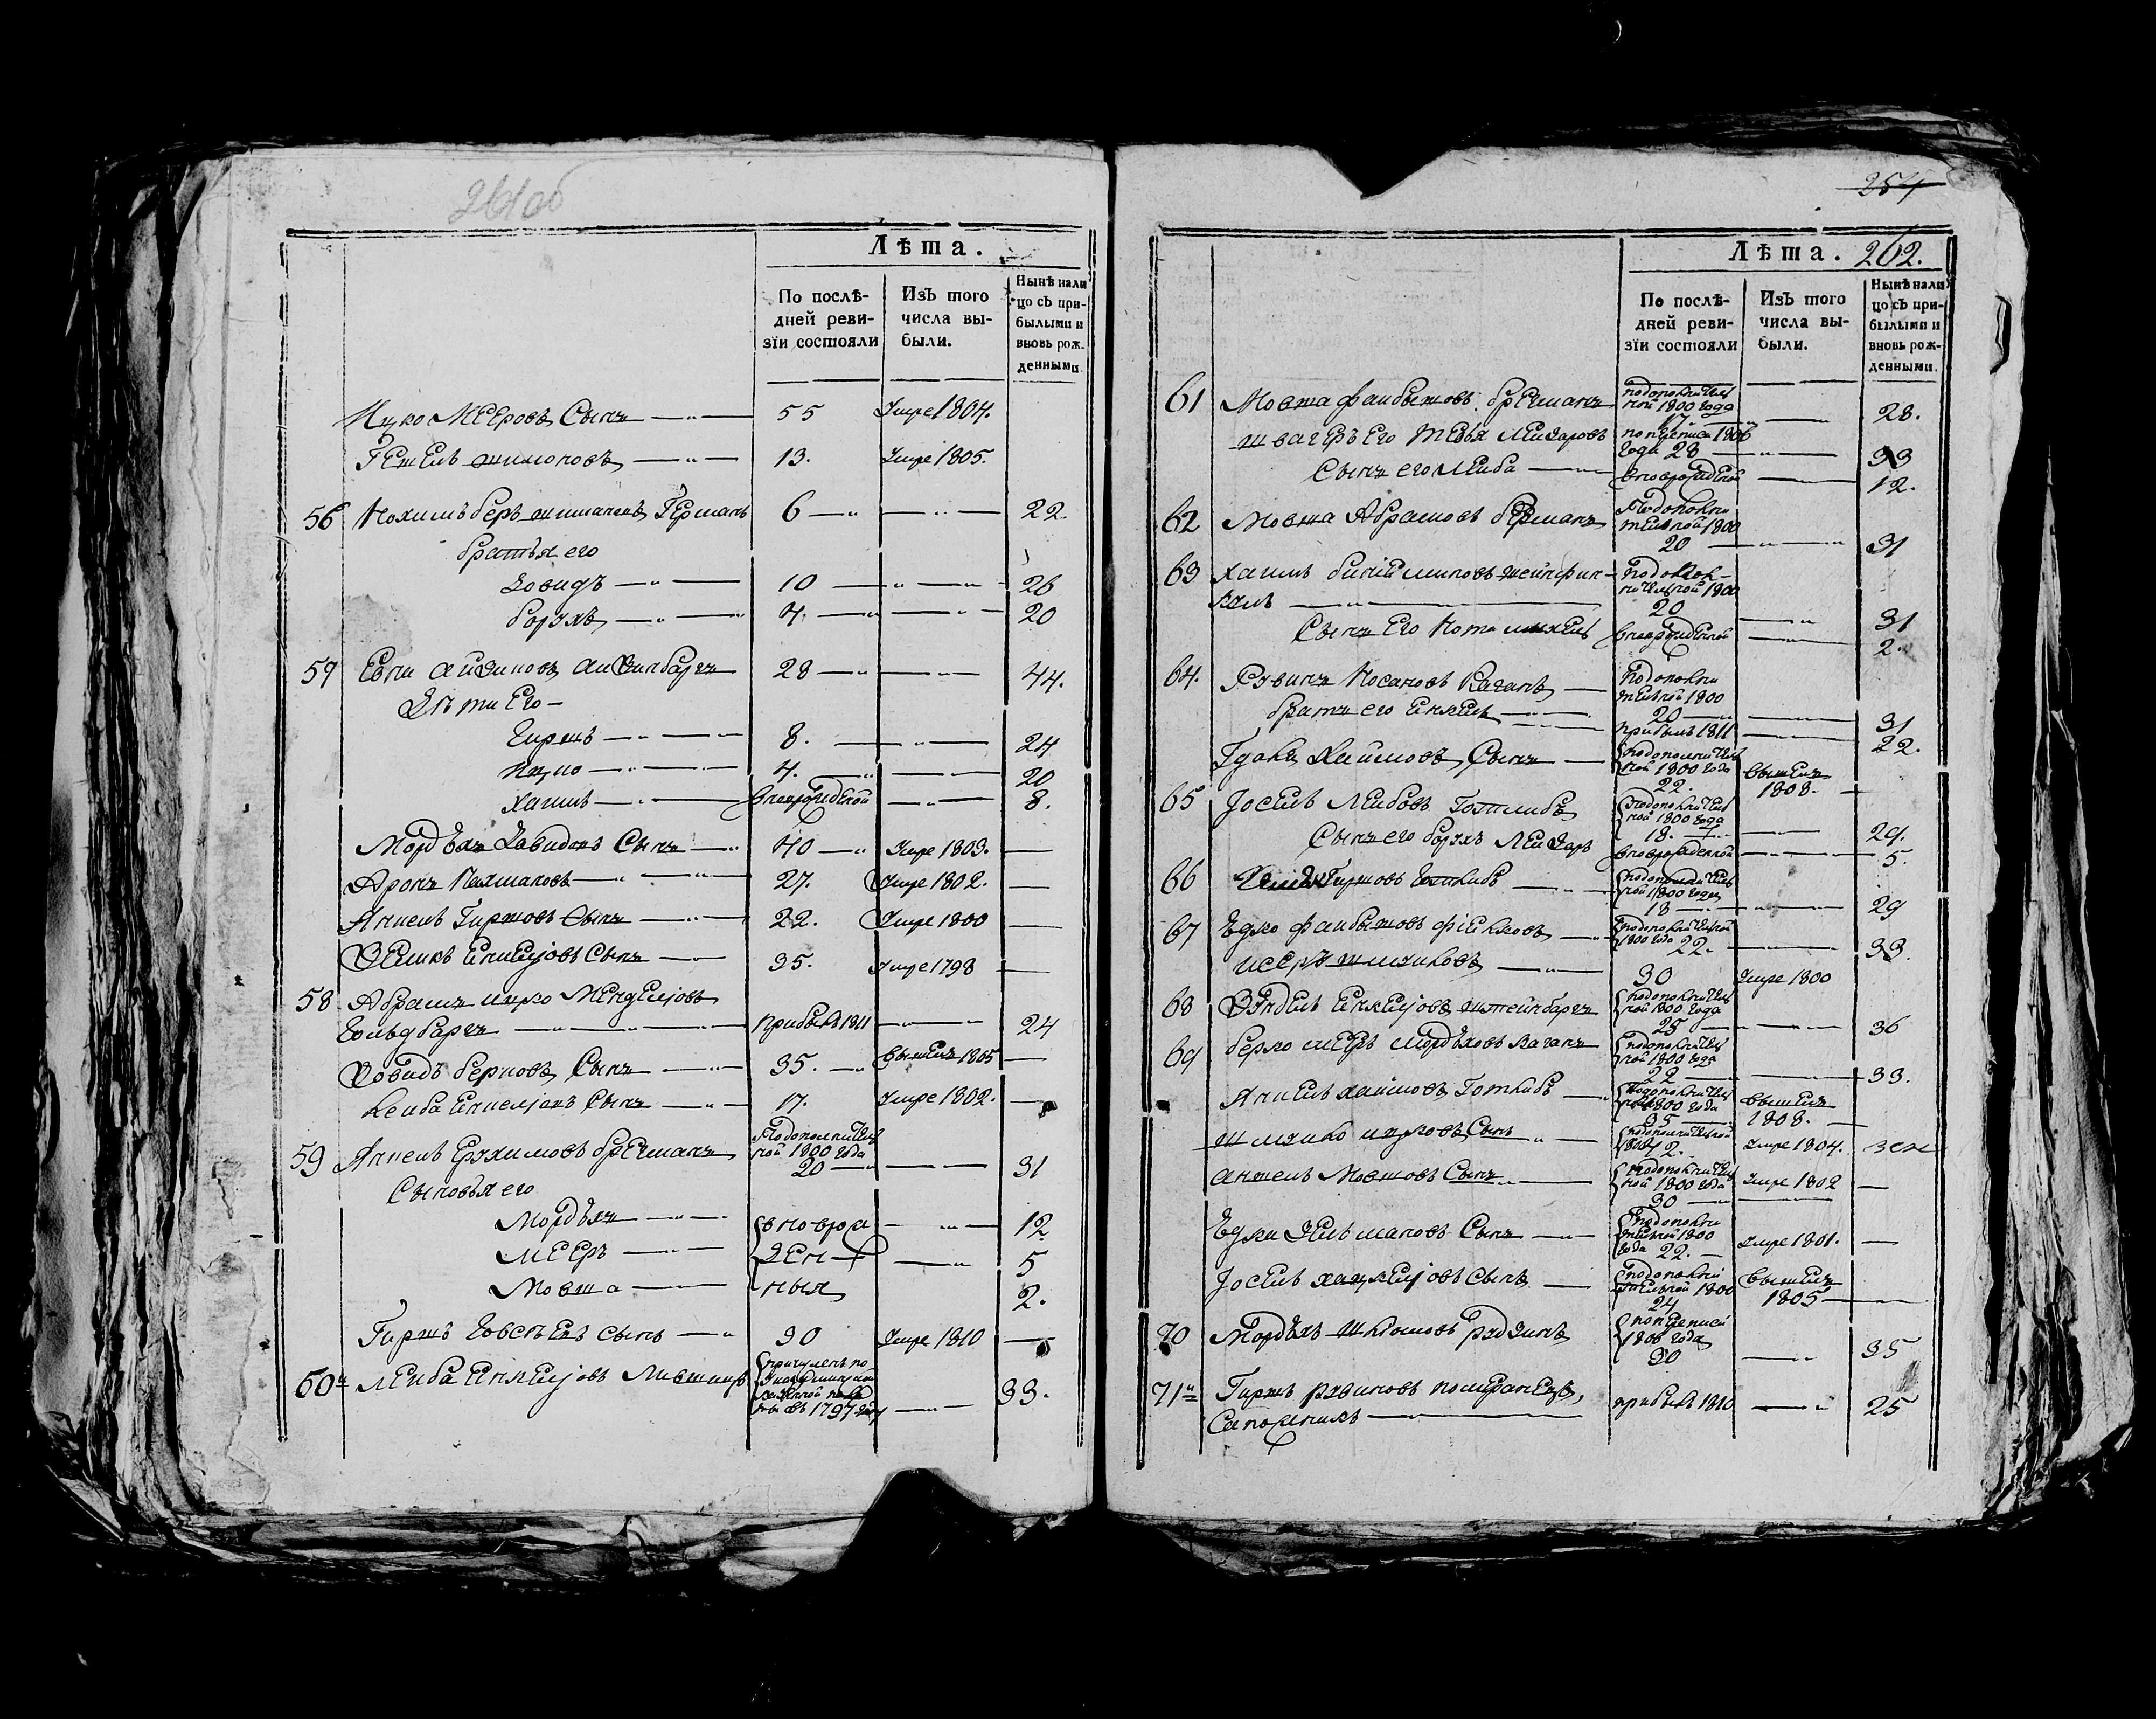 261об
Лѣта.
По послѣ-
дней реви-
зїи состояли
Изъ того
числа вы-
были.
Нынѣ нали
цо съ при-
былыми и
вновь рож-
денными.
Ицко Мееровъ Сынъ 55 Умре 1804.
Гешель Шимоновъ 13. Умре 1805.
56 Нохимъ беръ шимановъ Германъ 6 22
братья его
Довидъ 10 26
борухъ 4. 20
57 Евна айзиковъ айзинбаргъ 28 44.
Дѣти Его
Гиршъ 8. 24
Ицко 4. 20
Хаимъ вновьрожденной 8.
Мордъхъ Давидовъ Сынъ 40 Умре 1803.
Аронъ Нахмановъ 27. Умре 1802.
Аншель Гиршовъ Сынъ 22. Умре 1800
Зеликъ Сынъ 35. Умре 1798
58 Абрамъ ицко Менделіовъ
Гольдбаргъ прибылъ 1811 24
Довидъ берковъ Сынъ 35. вышелъ 1805
Лейба Сынъ 17. Умре 1802.
59 Аншель брегманъ
Подополнитель
ной 1800 года
20 31
Сыновья его
Мордъхъ вновьро 12
Мееръ жден 5
Мовша ныя 2.
Гиршъ Сынъ 30 Умре 1810
60й Лейба Енкеліовъ Лившицъ
причисленъ по
въ 1797 году 33.
254
262.
Лѣта.
По послѣ-
дней реви-
зїи состояли
Изъ того
числа вы-
были.
Нынѣ нали
цо съ при-
былыми и
вновь рож-
денными.
61 Мовша файбышовъ брегманъ
подополнитель
ной 1800 года
17. 28.
швагеръ Его Тевья Лейзаровъ
поприписи 1806
года 28 33
Сынъ его Лейба вновьрожденной 12.
62 Мовша Абрамовъ берманъ
Подополни
тельной 1800
20 31
63 Хаимъ биніаминовъ шейнфин-
кель
подополни-
тельной 1800
20 31
Сынъ Его Нота вновьрожденной 2.
64. Рувинъ Носановъ Каганъ
подополни
тельной 1800
20 31
братъ его Енкель прибылъ 1811 22.
Гдаль Хаимовъ Сынъ
подополнитель
ной 1800 года
22. вышелъ
1808.
65 Іосель Лейбовъ Готлибъ
подополнитель
ной 1800 года
18. 29.
Сынъ его борухъ Лейзаръ вновьрожденной 5.
66 Гиршовъ Готлибъ
подополнитель
ной 1800 года
18 29
67 Юдко файбышовъ
подополнительной
1800 года 22. 33.
Исеръ шліомковъ 30 Умре 1800
68 Зендель Енкеліовъ штейнбаргъ
подополнитель
ной 1800 года
25 36
69 берко мееръ Мордъховъ Каганъ
подополнитель
ной 1800 года
22 33.
Аншель хаимовъ Готлибъ
подополнитель
ной 1800 года
35 вышелъ
1808.
ицковъ Сынъ
подополнительной
Умре 1804.
Аншель Мовшовъ Сынъ
подополнитель
ной 1800 года
30 Умре 1802
Юдка Зельмановъ Сынъ
подополни
тельной 1800
года 22. Умре 1801.
Іосель хацкеліовъ Сынъ
подополни
тельной 1800
24 вышелъ
1805
70 Мордъхъ шліомовъ рудзинъ
поприписи
1806 года
30 35
71й Гиршъ рувиновъ померанецъ,
Сапожникъ прибылъ 1810 25